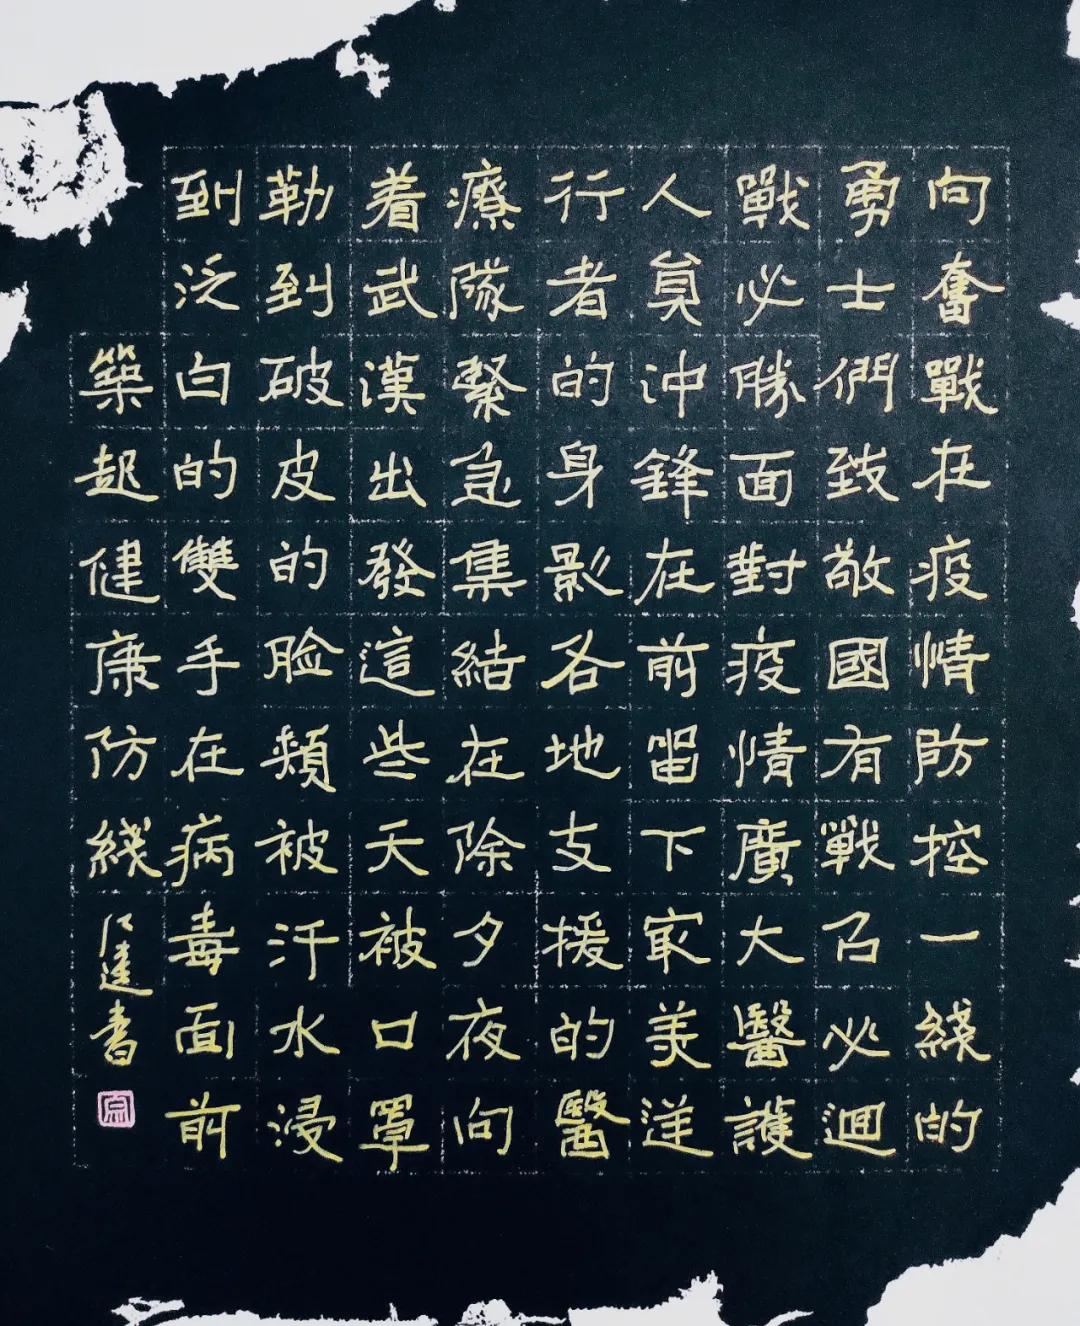 向奮戰在疫情防控一綫的
勇士們致敬國有戰召必迴
戰必勝面對疫情廣大醫護
人員沖鋒在前留下最美逆
行者的身影各地支援的醫
療隊緊急集結在除夕夜向
着武漢出發這些天被口罩
勒到破皮的脸頰被汗水浸
到泛白的雙手在病毒面前
築起健康防綫
達書